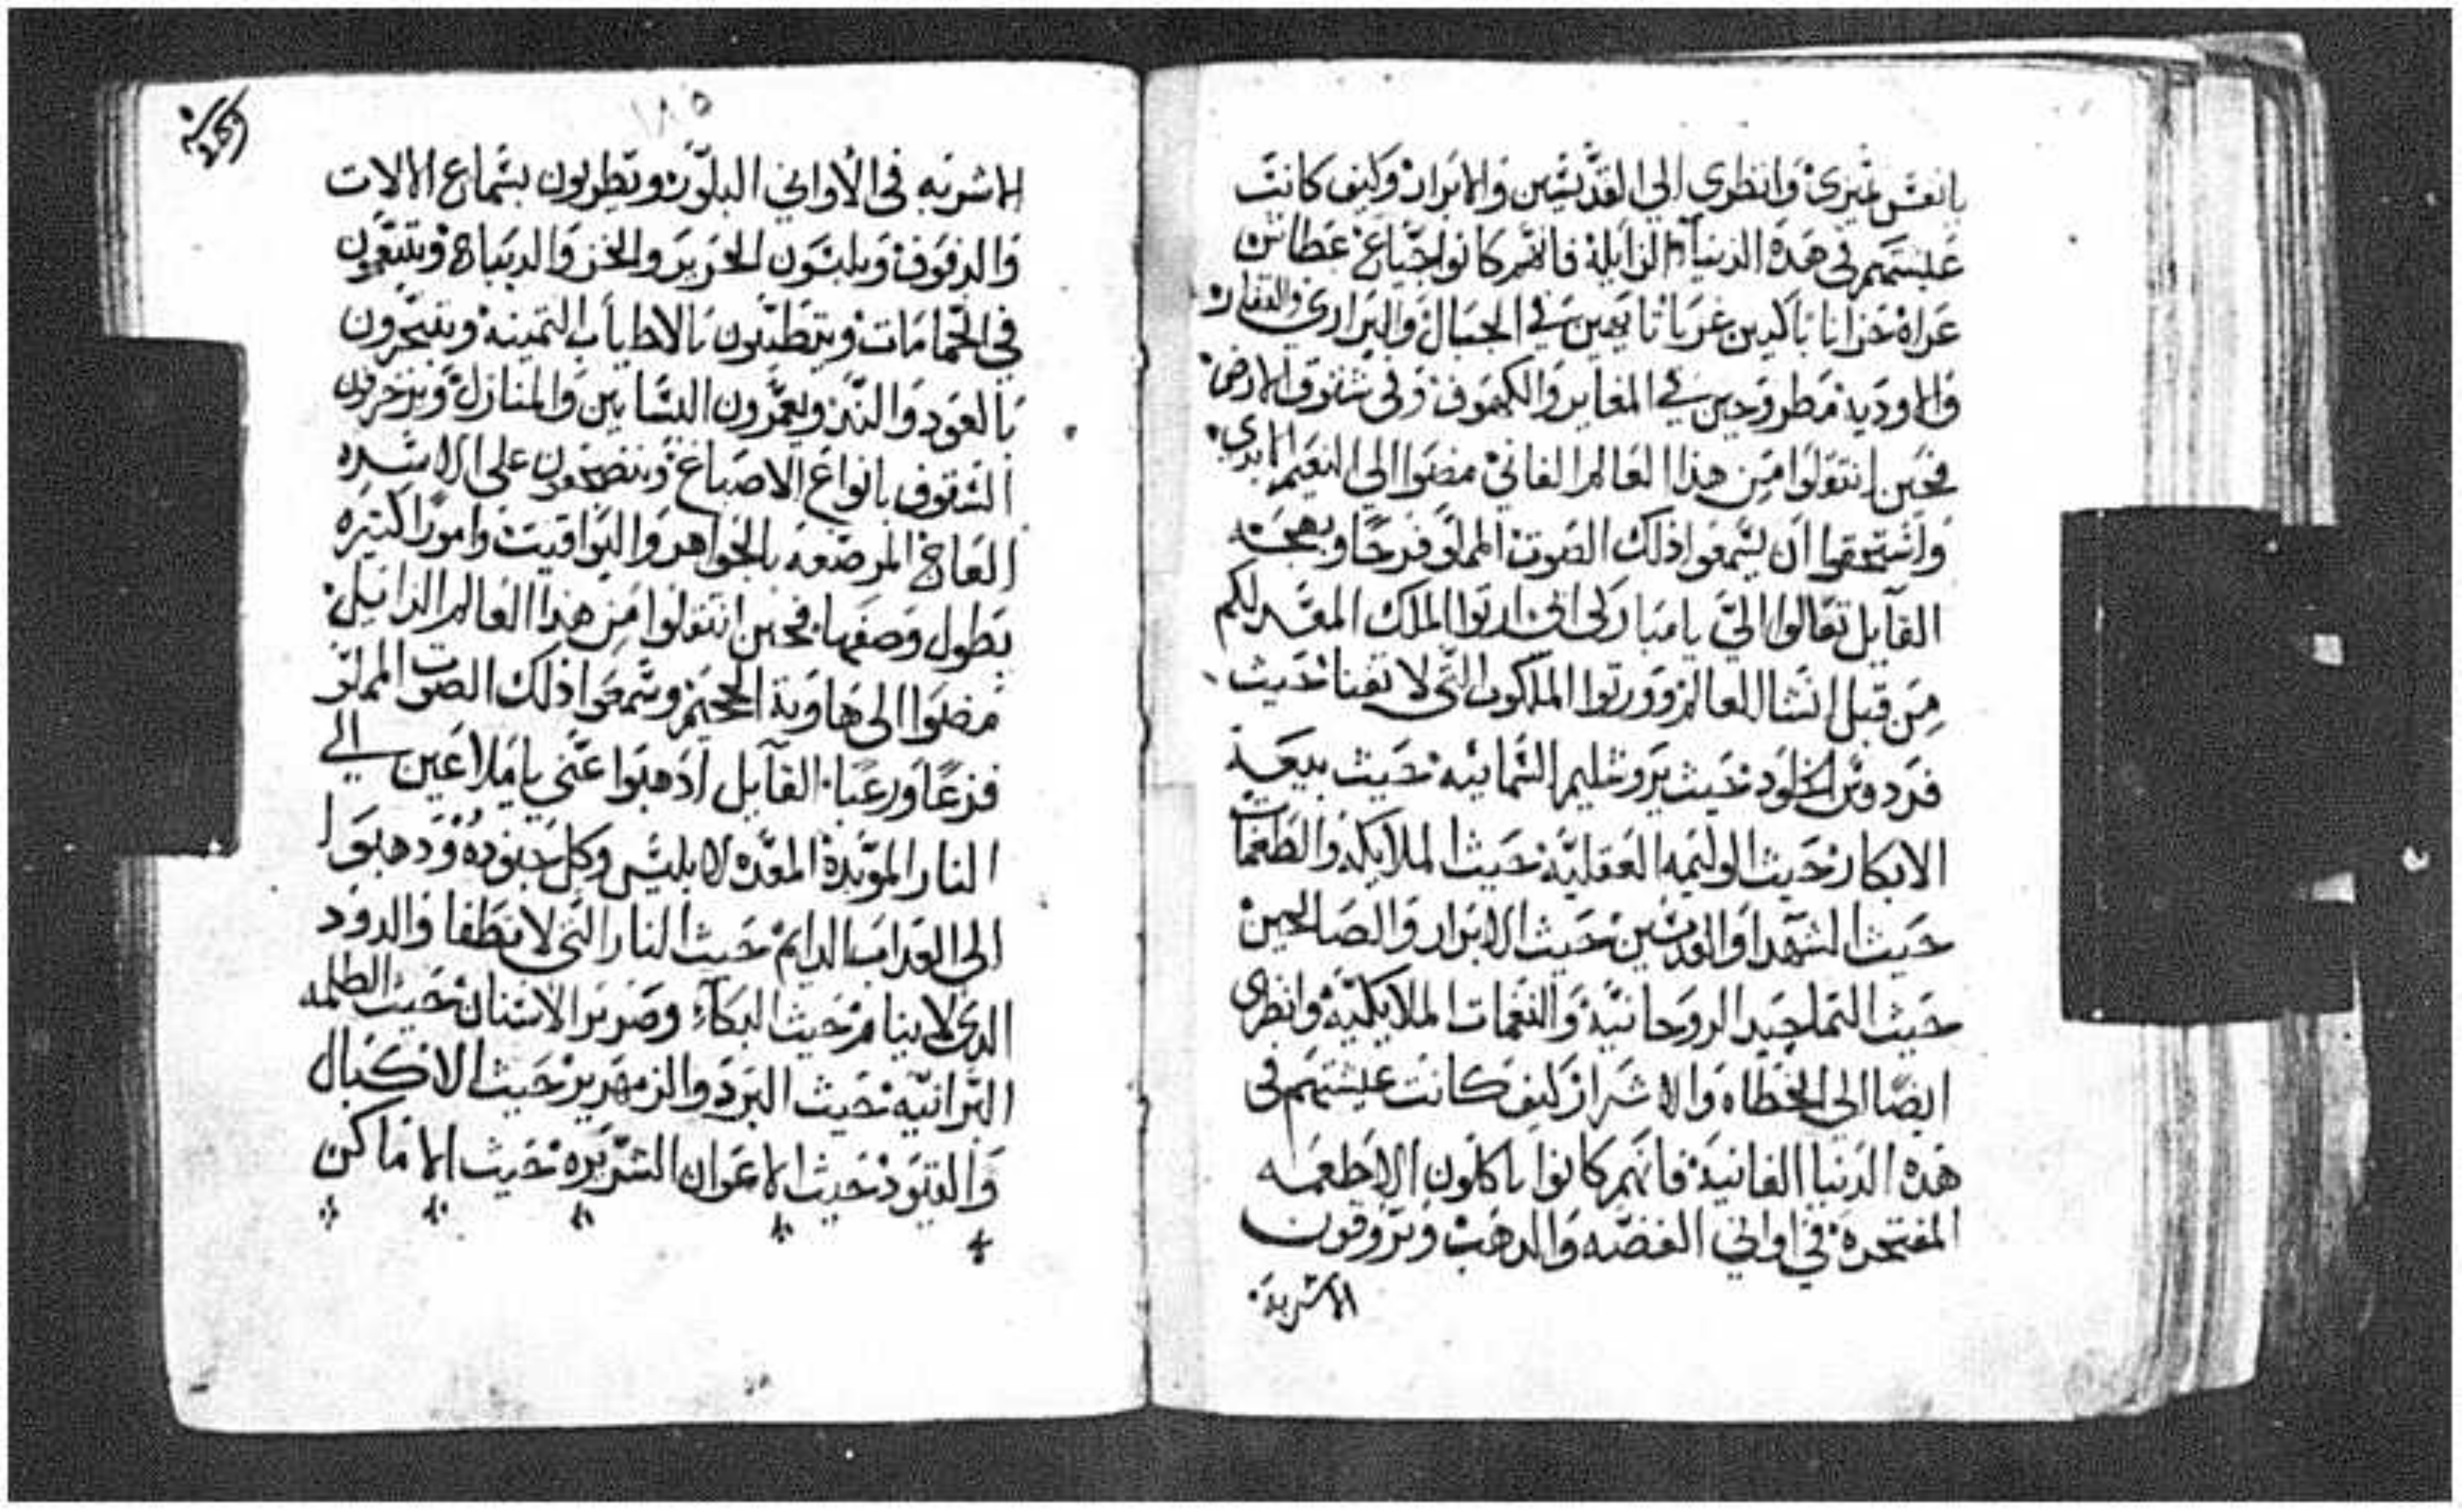 يانفس ميزي وانظري الي القديسين والابرار وكيف كانت
عيشتهم في هده الدنيا الزايله فانهم كانوا جياع عطاش
عراه حزانا باكيين غربا تايهين في الجبال والبراري والقفار
والاوديه مطروحين في المغاير والكهوف وفي شقوق الارض
فحين انتقلوا من هذا العالم الفاني مضوا الي النعيم الابدي
واستحقوا ان يسمعوا ذلك الصوت المملو فرحا وبهجه
القايل تعالوا الي يا مباركي ابي ارتوا الملك المعد لكم
من قبل انشا العالم وورتوا الملكوت التي لا تفنا حيث
فردوس الخلود حيث يروشليم السمائيه حيث بيعة
الابكار حيث الوليمه العقليه حيث الملايكه والطغمات
حيث الشهدا والقديسين حيث الابرار والصالحين
حيث التماجيد الروحانية والنغمات الملايكيه وانظري
ايضا الي الخطاه والاشرار كيف كانت عيشتهم في
هده الدنيا الفانية فانهم كانوا ياكلون الاطعمه
المفتخرة في اواني الفضه والدهب ويروقون
الاشربة
١٨٥
الاشربه في الاواني البلور ويطربون بسماع الالات
والدفوف ويلبسون الحرير والخز والديباج ويتنعمون
في الحمامات ويتطيبون بالاطياب التمينه ويتبخرون
بالعود والند ويعمرون البساتين والمنازل ويزخرفون
السقوف بانواع الاصباغ وينضجعون علي الاسره
العاج المرصعه بالجواهر واليواقيت وامورا كتيره
يطول وصفها فحين انتقلوا من هذا العالم الزايل
مضوا الي هاوية الجحيم وسمعوا ذلك الصوت المملو
فزعا ورعبا القايل ادهبوا عني يا ملاعين الي
النار الموبدة المعده لابليس وكل جنوده ودهبوا
الي العداب الدايم حيث النار التي لا تطفا والدود
الدي لا ينام حيث البكاء وصرير الاسنان حيث الظلمه
البرانيه حيث البرد والزمهرير حيث الاكبال
والقيود حيث الاعوان الشريره حيث الاماكن